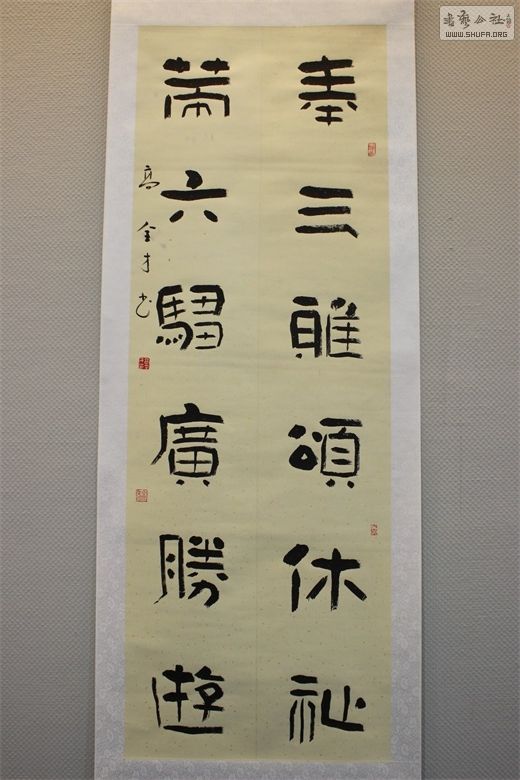 奉三雝頌休祉
荣六騮廣勝遊
高全才书
书艺公社
WWW.SHUFA.ORG